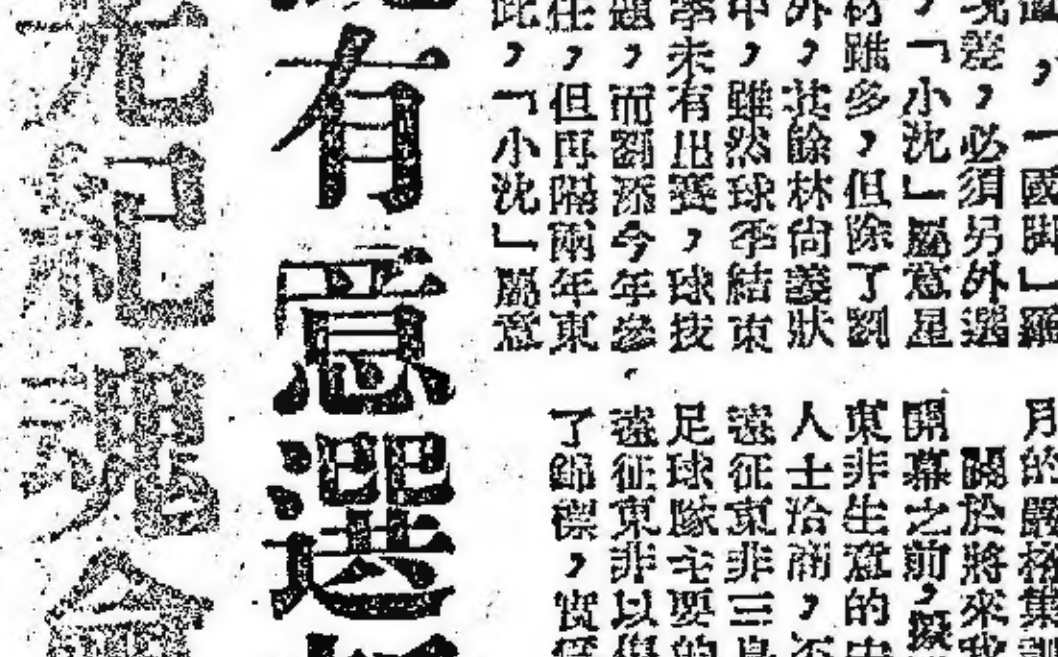 ，「國脚」羅
差，必須另外選
，「小沈」屬意星
材雖多，但除了劉
外，其餘林尙義狀
中，雖然球季結束
季未有出賽，球技
題，而劉添今年參
任，但再隔兩年東
此，「小沈」屬意
月的嚴格集訓
關於將來我
開幕之前，
東非生意的
人士洽商，
遠征東非三
足球隊主要的
遠征東非以
了錦標，實
有意選
紀魂會